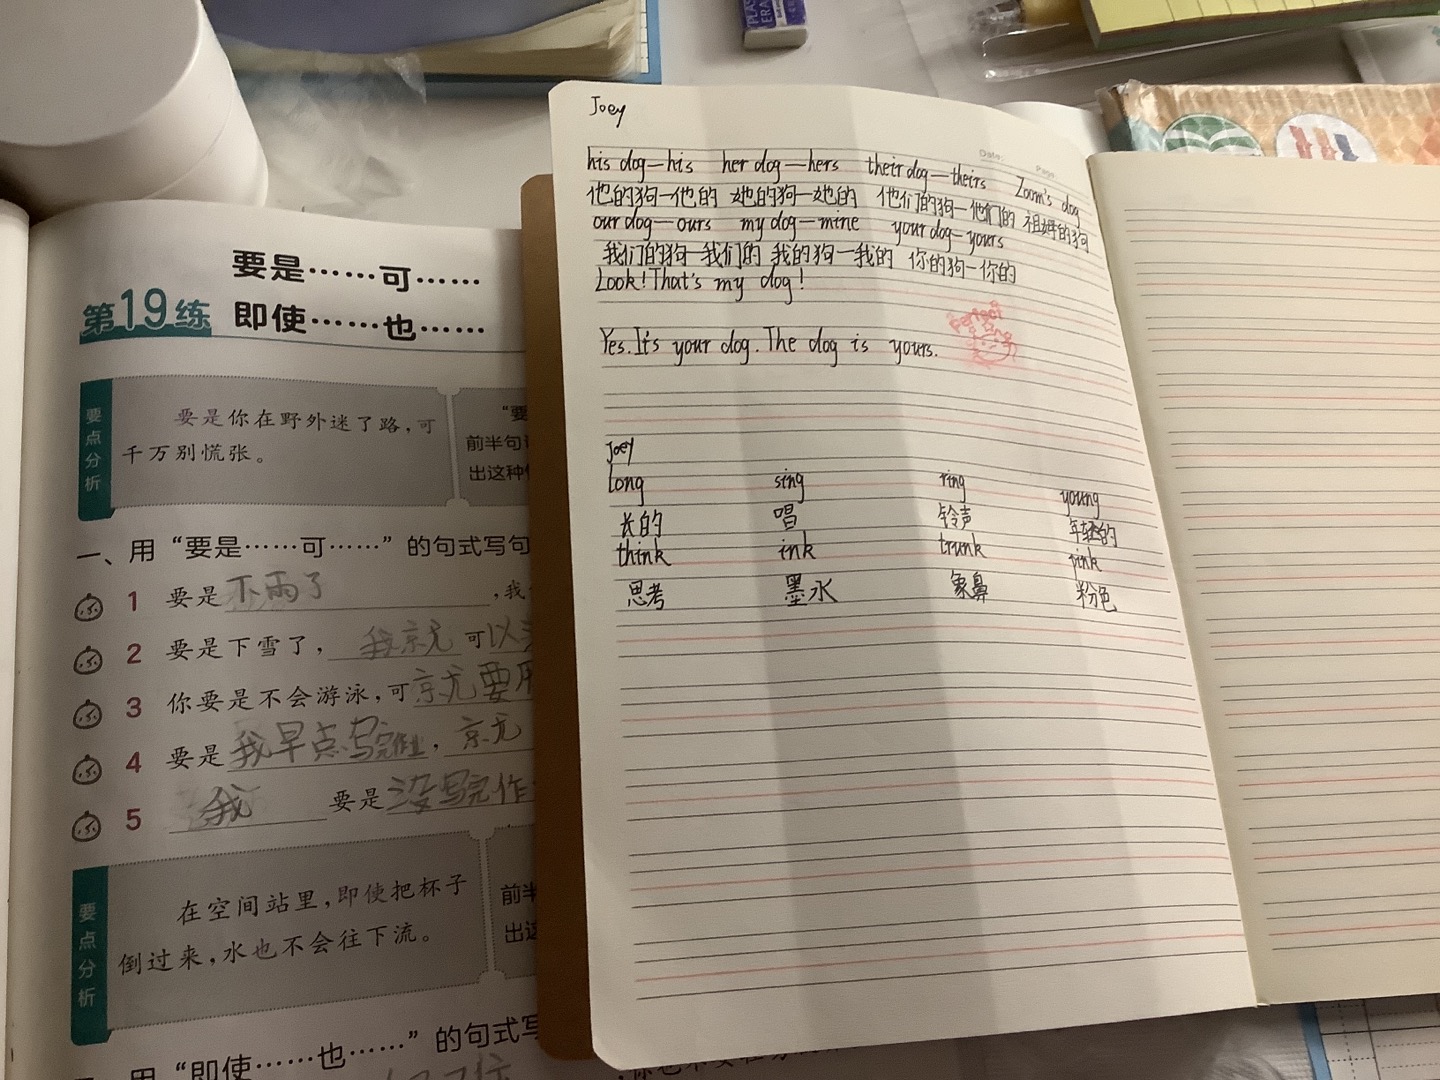 要是……可……
第19练
即使……也……
要点分析
要是你在野外迷了路,可
千万别慌张。
"要
前半句
出这种
一、用"要是……可……"的句式写句
1 要是下雨了,我
2 要是下雪了,我京尤可以
3 你要是不会游泳,可京尤要用
4 要是我早点写完作业,京尤
5 我要是没写完作
要点分析
在空间站里,即使把杯子
倒过来,水也不会往下流。
前半
出这
用"即使……也……"的句式写
Joey
Date: Page:
his dog—his her dog—hers their dog—theirs Zoom's dog
他的狗—他的 她的狗—她的 他们的狗—他们的 祖姆的狗
our dog—ours my dog—mine your dog—yours
我们的狗—我们的 我的狗—我的 你的狗—你的
Look! That's my dog!
Yes. It's your dog. The dog is yours.
Perfect
Joey
long sing ring young
长的 唱 铃声 年轻的
think ink trunk pink
思考 墨水 象鼻 粉色